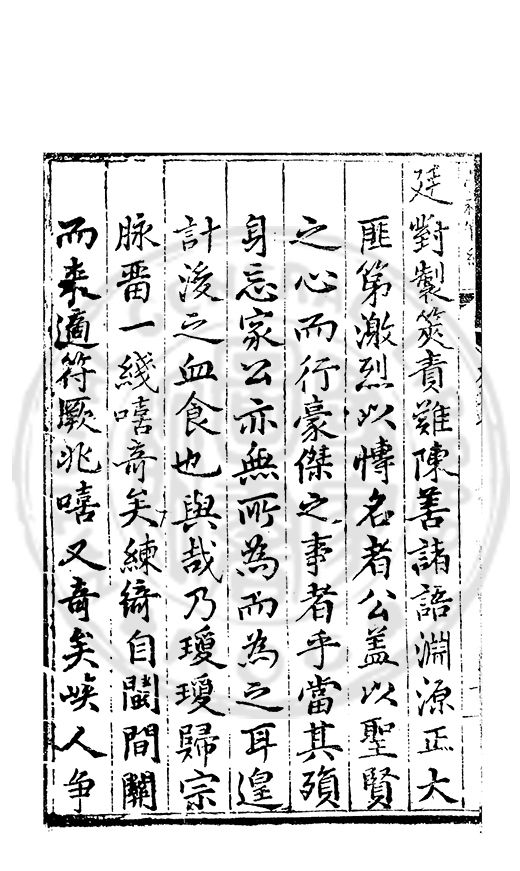 廷對製筴責難陳善諸語淵源正大
匪第激烈以慱名者公盖以聖賢
之心而行豪傑之事者乎當其殞
身忘家公亦無所為而為之耳遑
計後之血食也與哉乃瓊瓊歸宗
脉畱一綫嘻奇矣練綺自閩間關
而来適符厥兆嘻又奇矣峽人争